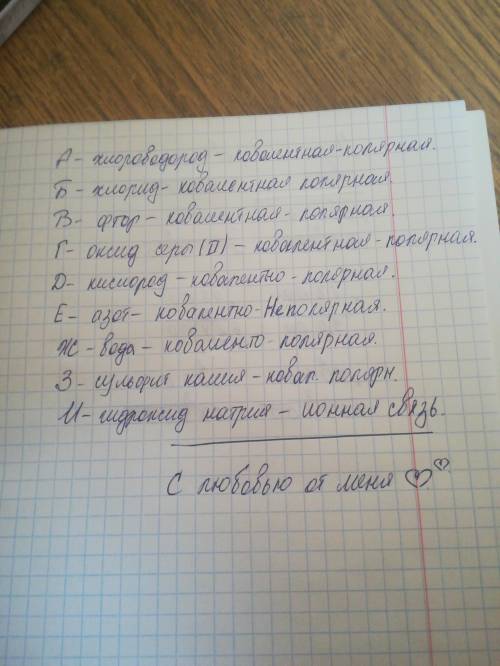 А - хлороводород - ковалентная-полярная.
Б - хлорид - ковалентная полярная.
В - фтор - ковалентная - полярная.
Г - оксид серы (II) - ковалентная-полярная.
Д - кислород - ковалентно - полярная.
Е - азот - ковалентно-Неполярная.
Ж - вода - коваленто-полярная.
З - сульфит калия - ковал. полярн.
И - гидроксид натрия - ионная связь.
С любовью от меня ♡♡